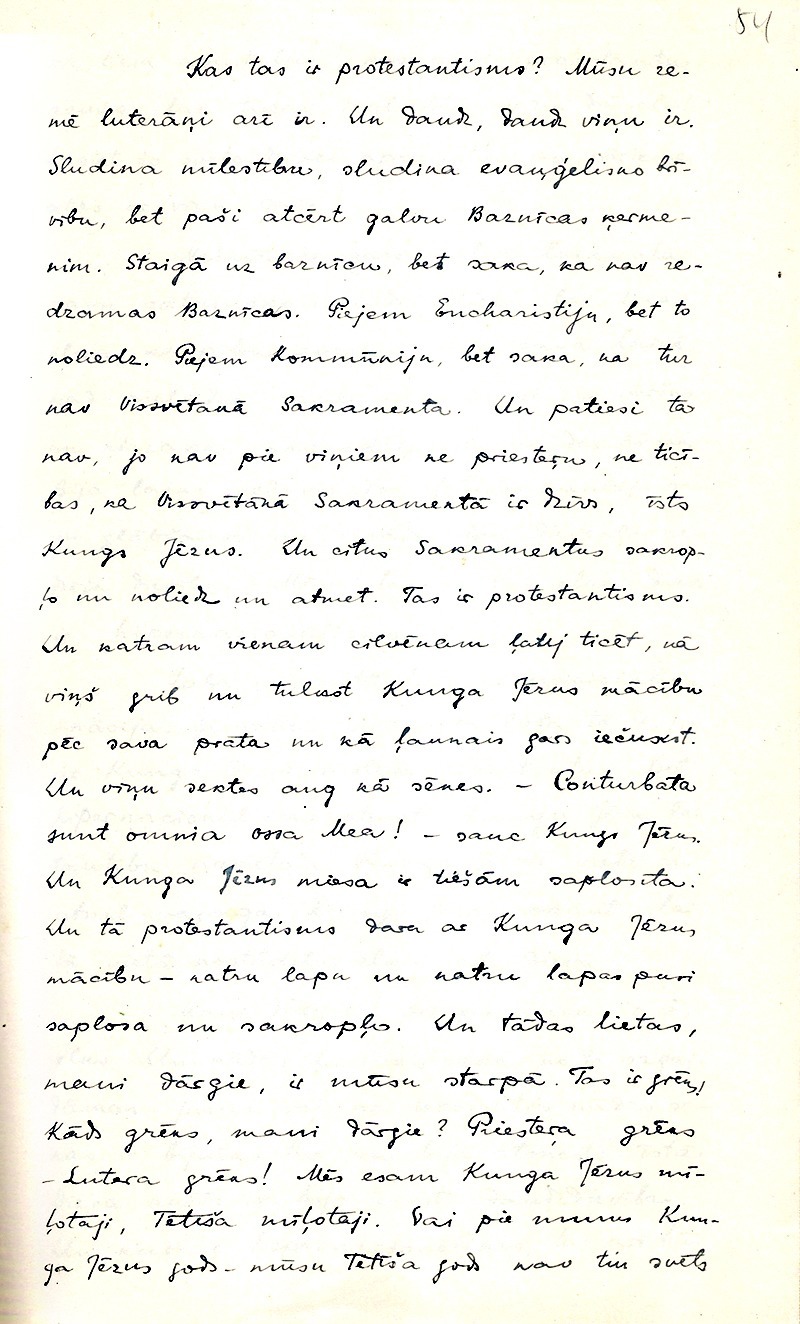 54
Kas tas ir protestantisms? Mūsu ze-
mē luterāņi arī ir. Un daudz, daudz viņu ir.
Sludina mīlestību, sludina evaņģelisko brī-
vību, bet paši atcērt galvu Baznīcas ķerme-
nim. Staigā uz baznīcu, bet saka, ka nav re-
dzamas Baznīcas. Pieņem Eucharistiju, bet to
noliedz. Pieņem Kommūniju, bet saka, ka tur
nav Vissvētakā Sakramenta. Un patiesi tā
nav, jo nav pie viņiem ne priesteŗu, ne ticī-
bas, ka Vissvētākā Sakramentā ir dzīvs, īsts
Kungs Jēzus. Un citus Sakramentus sakrop-
ļo un noliedz un atmet. Tas ir protestantisms.
Un katram vienam cilvēkam ļauj ticēt, kā
viņš grib un tulkot Kunga Jēzus mācību
pēc sava prāta un kā ļaunais gars iečukst.
Un viņu sektes aug kā sēnes. – Conturbata
sunt omnia ossa Mea! – sauc Kungs Jēzus.
Un Kunga Jēzus miesa ir tiešām saplosīta.
Un tā protestantisms dara ar Kunga Jēzus
mācību – katru lapu un katru lapas pusi
saplosa un sakropļo. Un tādas lietas,
mani dārgie, ir mūsu starpā. Tas ir grēks!
Kāds grēks, mani dārgie? Priesteŗa grēks
– Lutera grēks! Mēs esam Kunga Jēzus mī-
ļotaji, Tētiša mīļotaji. Vai pie mums Kun-
ga Jēzus gods – mūsu Tētiša gods nav tik svēts